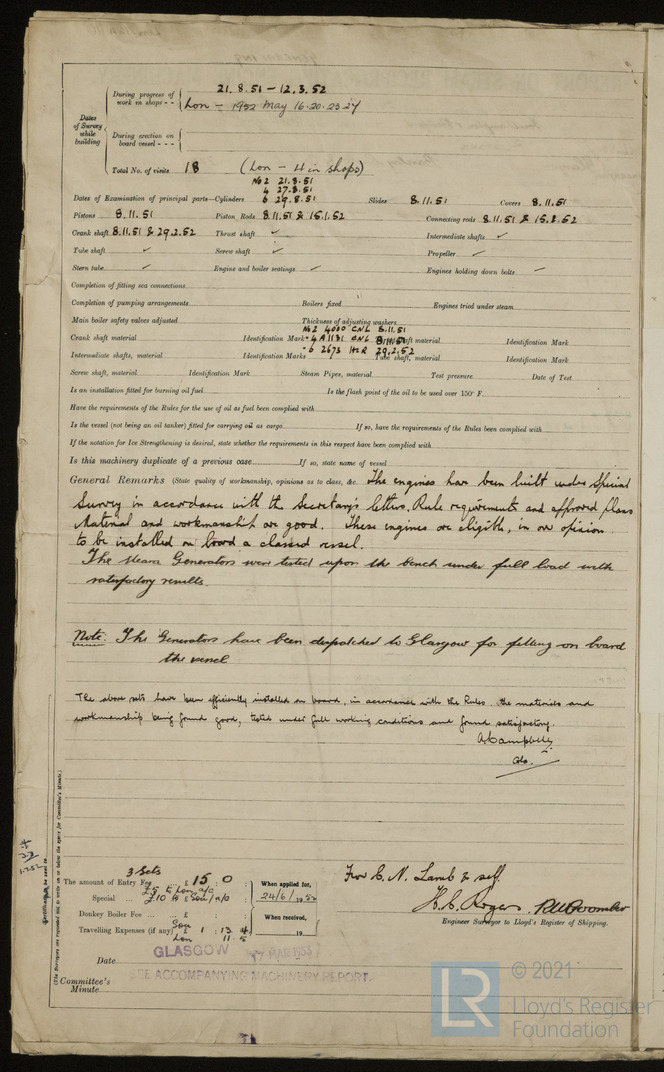 During progress of work in shops - - 21.8.51 — 12.3.52
Lon — 1952 May 16-20-23 27
Dates of Survey while building
During erection on board vessel - - -
Total No. of visits 18 (Lon — 4 in shops)
No 2 21.8.51
4 27.8.51
Dates of Examination of principal parts—Cylinders 6 29.8.51 Slides 8.11.51 Covers 8.11.51
Pistons 8.11.51 Piston Rods 8.11.51 & 15.1.52 Connecting rods 8.11.51 & 15.2.52
Crank shaft 8.11.51 & 29.2.52 Thrust shaft ✓ Intermediate shafts ✓
Tube shaft ✓ Screw shaft ✓ Propeller ✓
Stern tube ✓ Engine and boiler seatings ✓ Engines holding down bolts —
Completion of fitting sea connections
Completion of pumping arrangements Boilers fixed Engines tried under steam
Main boiler safety valves adjusted Thickness of adjusting washers
No 2 4000 CNL 8.11.51
Crank shaft material Identification Mark - 4 A1131 CNL 8.11.51 shaft material Identification Mark
Intermediate shafts, material Identification Marks - 6 2673 HCR 29.2.52 Tube shaft, material Identification Mark
Screw shaft, material Identification Mark Steam Pipes, material Test pressure Date of Test
Is an installation fitted for burning oil fuel Is the flash point of the oil to be used over 150° F.
Have the requirements of the Rules for the use of oil as fuel been complied with
Is the vessel (not being an oil tanker) fitted for carrying oil as cargo If so, have the requirements of the Rules been complied with
If the notation for Ice Strengthening is desired, state whether the requirements in this respect have been complied with
Is this machinery duplicate of a previous case If so, state name of vessel
General Remarks (State quality of workmanship, opinions as to class, &c. The engines have been built under Special
Survey in accordance with the Secretary's letters, Rule requirements and approved plans
Material and workmanship are good. These engines are eligible, in our opinion
to be installed on board a classed vessel.
The steam Generators were tested upon the bench under full load with
satisfactory results.
Note: The Generators have been despatched to Glasgow for fitting on board
the vessel
The above sets have been efficiently installed on board, in accordance with the Rules, the materials and
workmanship being found good, tested under full working conditions and found satisfactory.
A Campbell
Gls.
(The Surveyors are requested not to write on or below the space for Committee's Minute.)
3 Sets
The amount of Entry Fee £ 15 : 0 When applied for,
£5 to Lon a/c
Special ... £10 to Sou/a/c 24/6/1952
Donkey Boiler Fee ... ... £ : : When received,
Sou
Travelling Expenses (if any) £ 1 : 13. 4 19
Lon 11. 5
For C. N. Lamb & self
H. C. Rogers R.W. Coomber
Engineer Surveyor to Lloyd's Register of Shipping.
Date GLASGOW
SEE ACCOMPANYING MACHINERY REPORT.
Committee's Minute
LR
© 2021
Lloyd's Register
Foundation